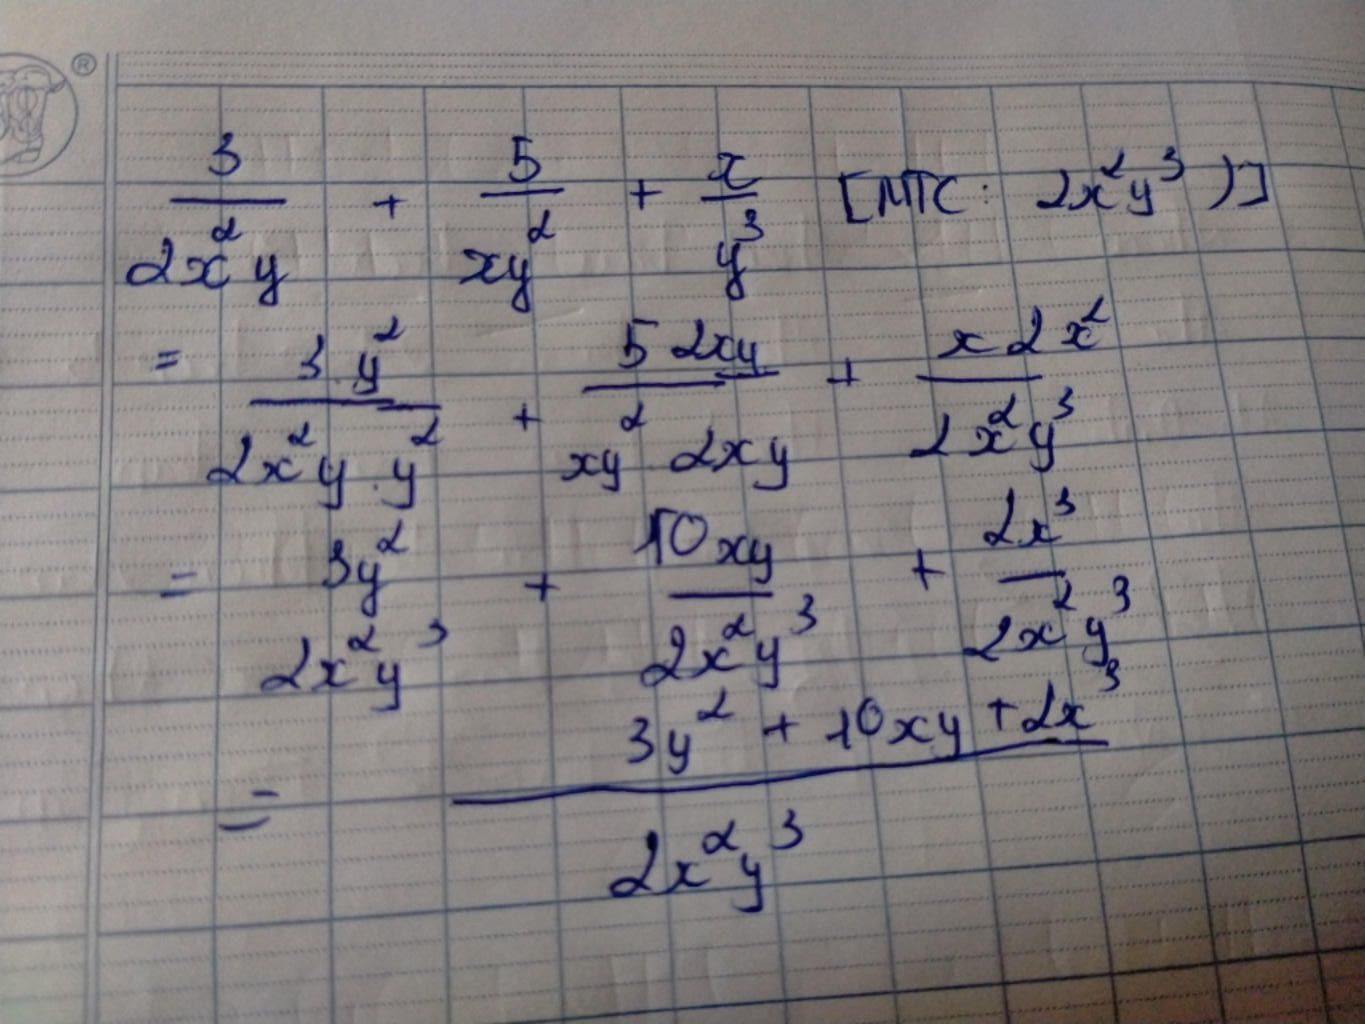 ®
3/(2x²y) + 5/(xy²) + x/y³ [MTC: 2x²y³)]
= (3.y²)/(2x²y.y²) + (5 2xy)/(xy² 2xy) + (x 2x²)/(2x²y³)
= 3y²/2x²y³ + (10xy)/(2x²y³) + (2x³)/(2x²y³)
= (3y² + 10xy + 2x³)/(2x²y³)